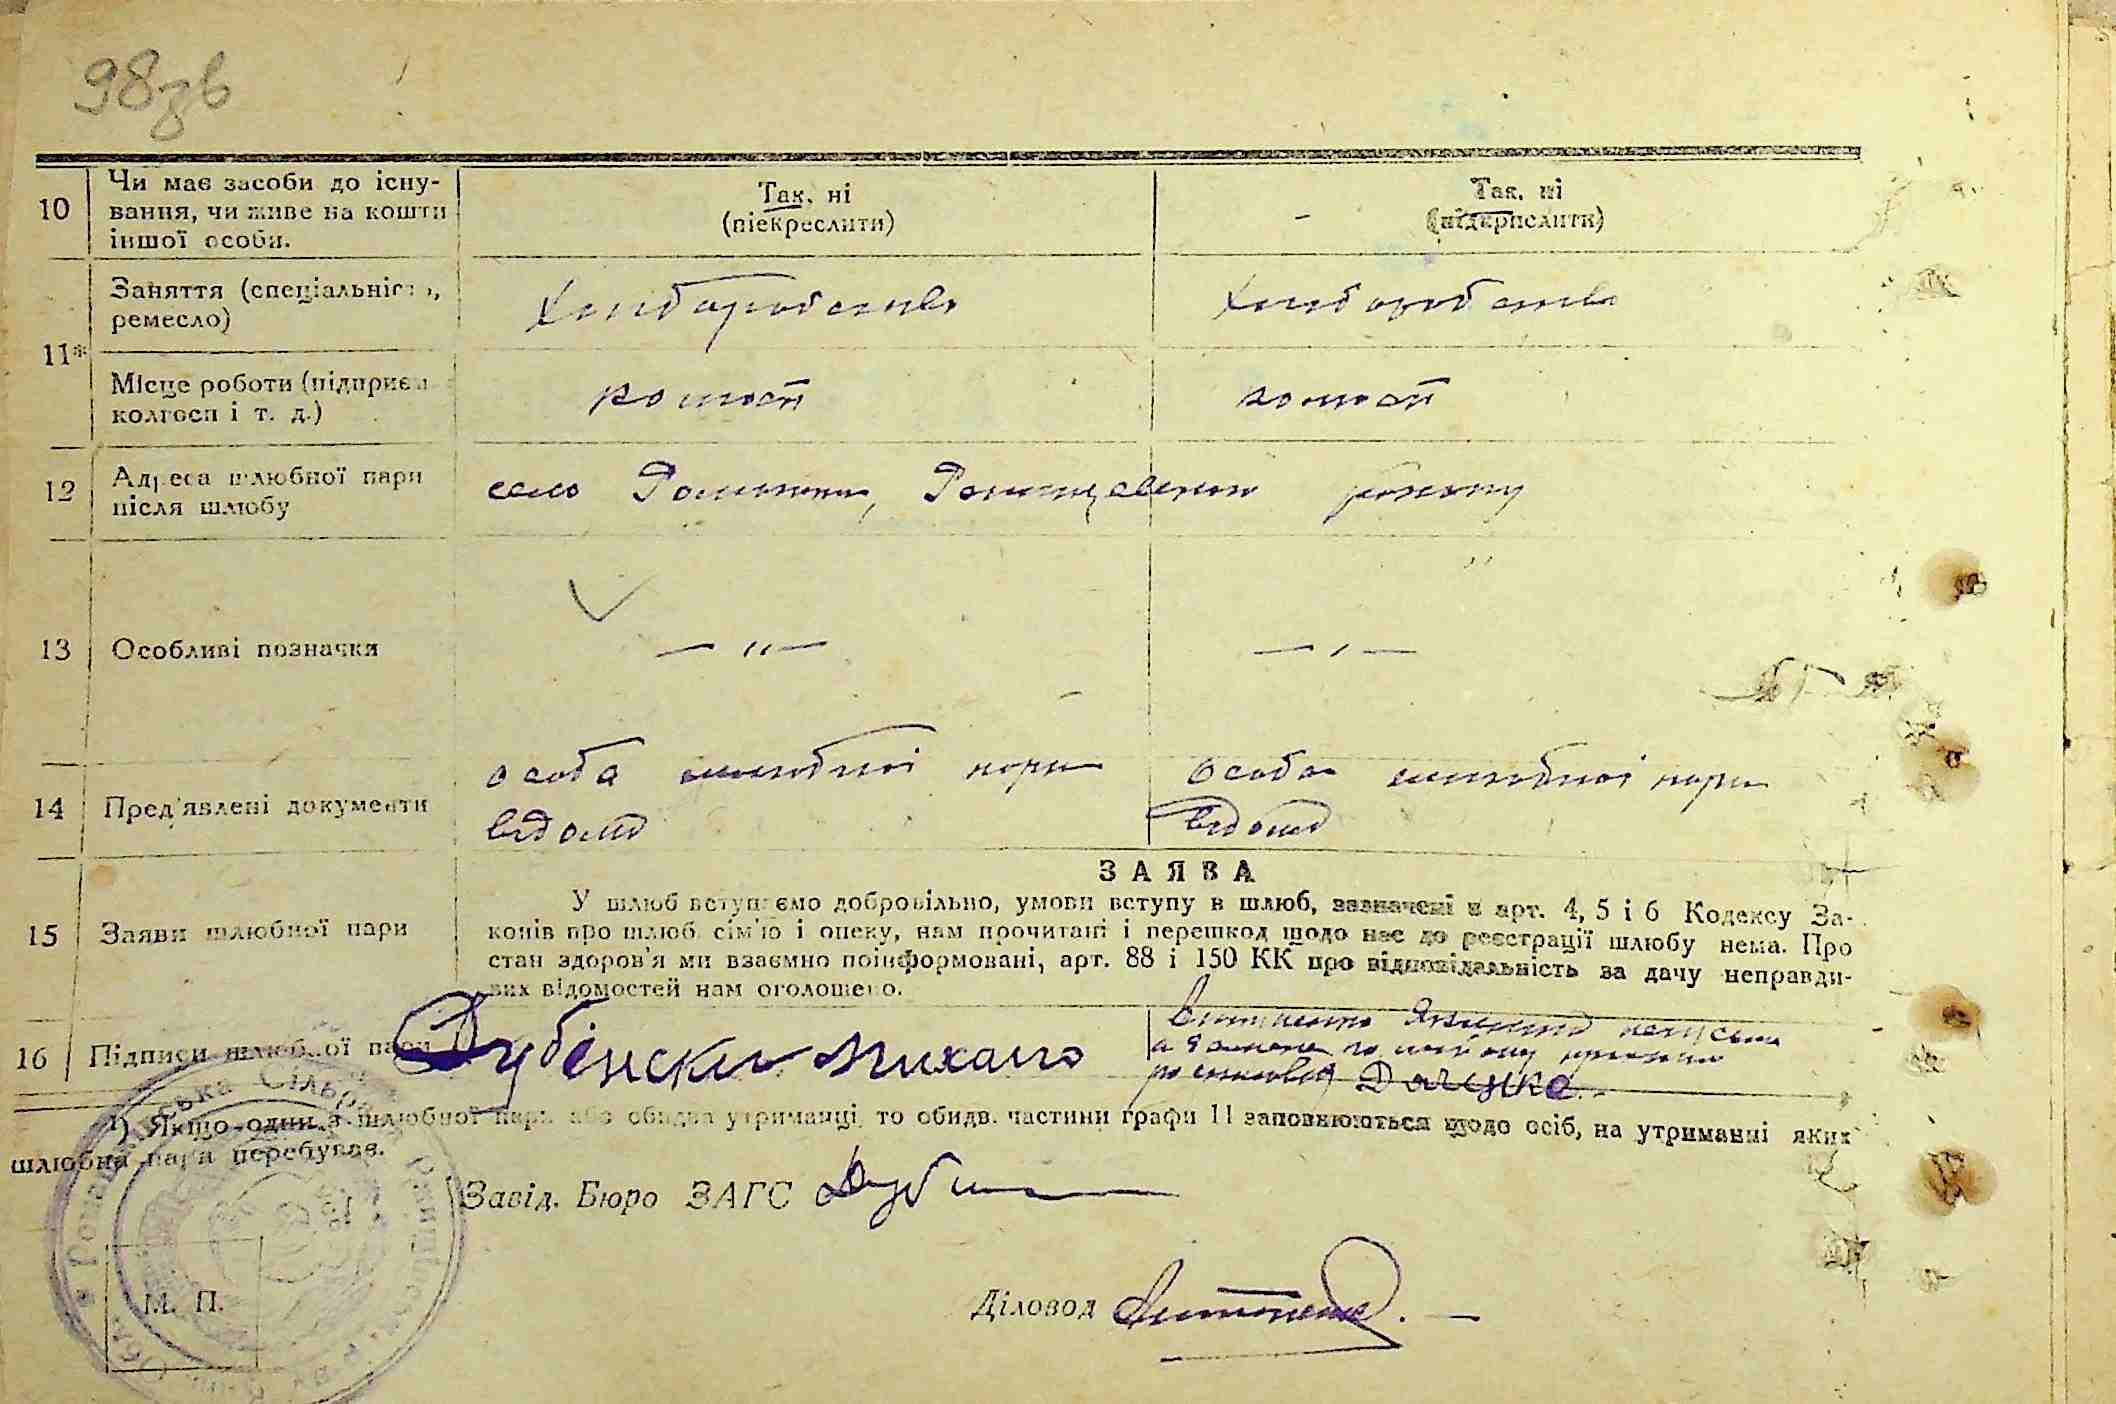 98зв
10 Чи має засоби до існу-
вання, чи живе на кошти
іншої особи.
Так, ні
(піекреслити)
Так, ні
(підкрислити)
Заняття (спеціальність,
ремесло)
Хліборобство
Хліборобство
11*
Місце роботи (підприєм
колгосп і т. д.)
колгосп
колгосп
12 Адреса шлюбної пари
після шлюбу
село району
13 Особливі позначки
— " —
— " —
14 Пред'явлені документи
особа шлюбної пари
відома
особа шлюбної пари
відома
ЗАЯВА
15 Заяви шлюбної пари
У шлюб вступаємо добровільно, умови вступу в шлюб, зазначені в арт. 4, 5 і 6 Кодексу За-
конів про шлюб, сім'ю і опеку, нам прочитані і перешкод щодо нас до реєстрації шлюбу нема. Про
стан здоров'я ми взаємно поінформовані, арт. 88 і 150 КК про відповідальність за дачу неправди-
вих відомостей нам оголошено.
16 Підписи шлюбної пари
Дубінский Михайло
¹) Якщо один з шлюбної пари або обидва утриманці, то обидв. частини графи 11 заповнюються щодо осіб, на утриманні яких
шлюбна пара перебуває.
Завід. Бюро ЗАГС
Діловод
М. П.